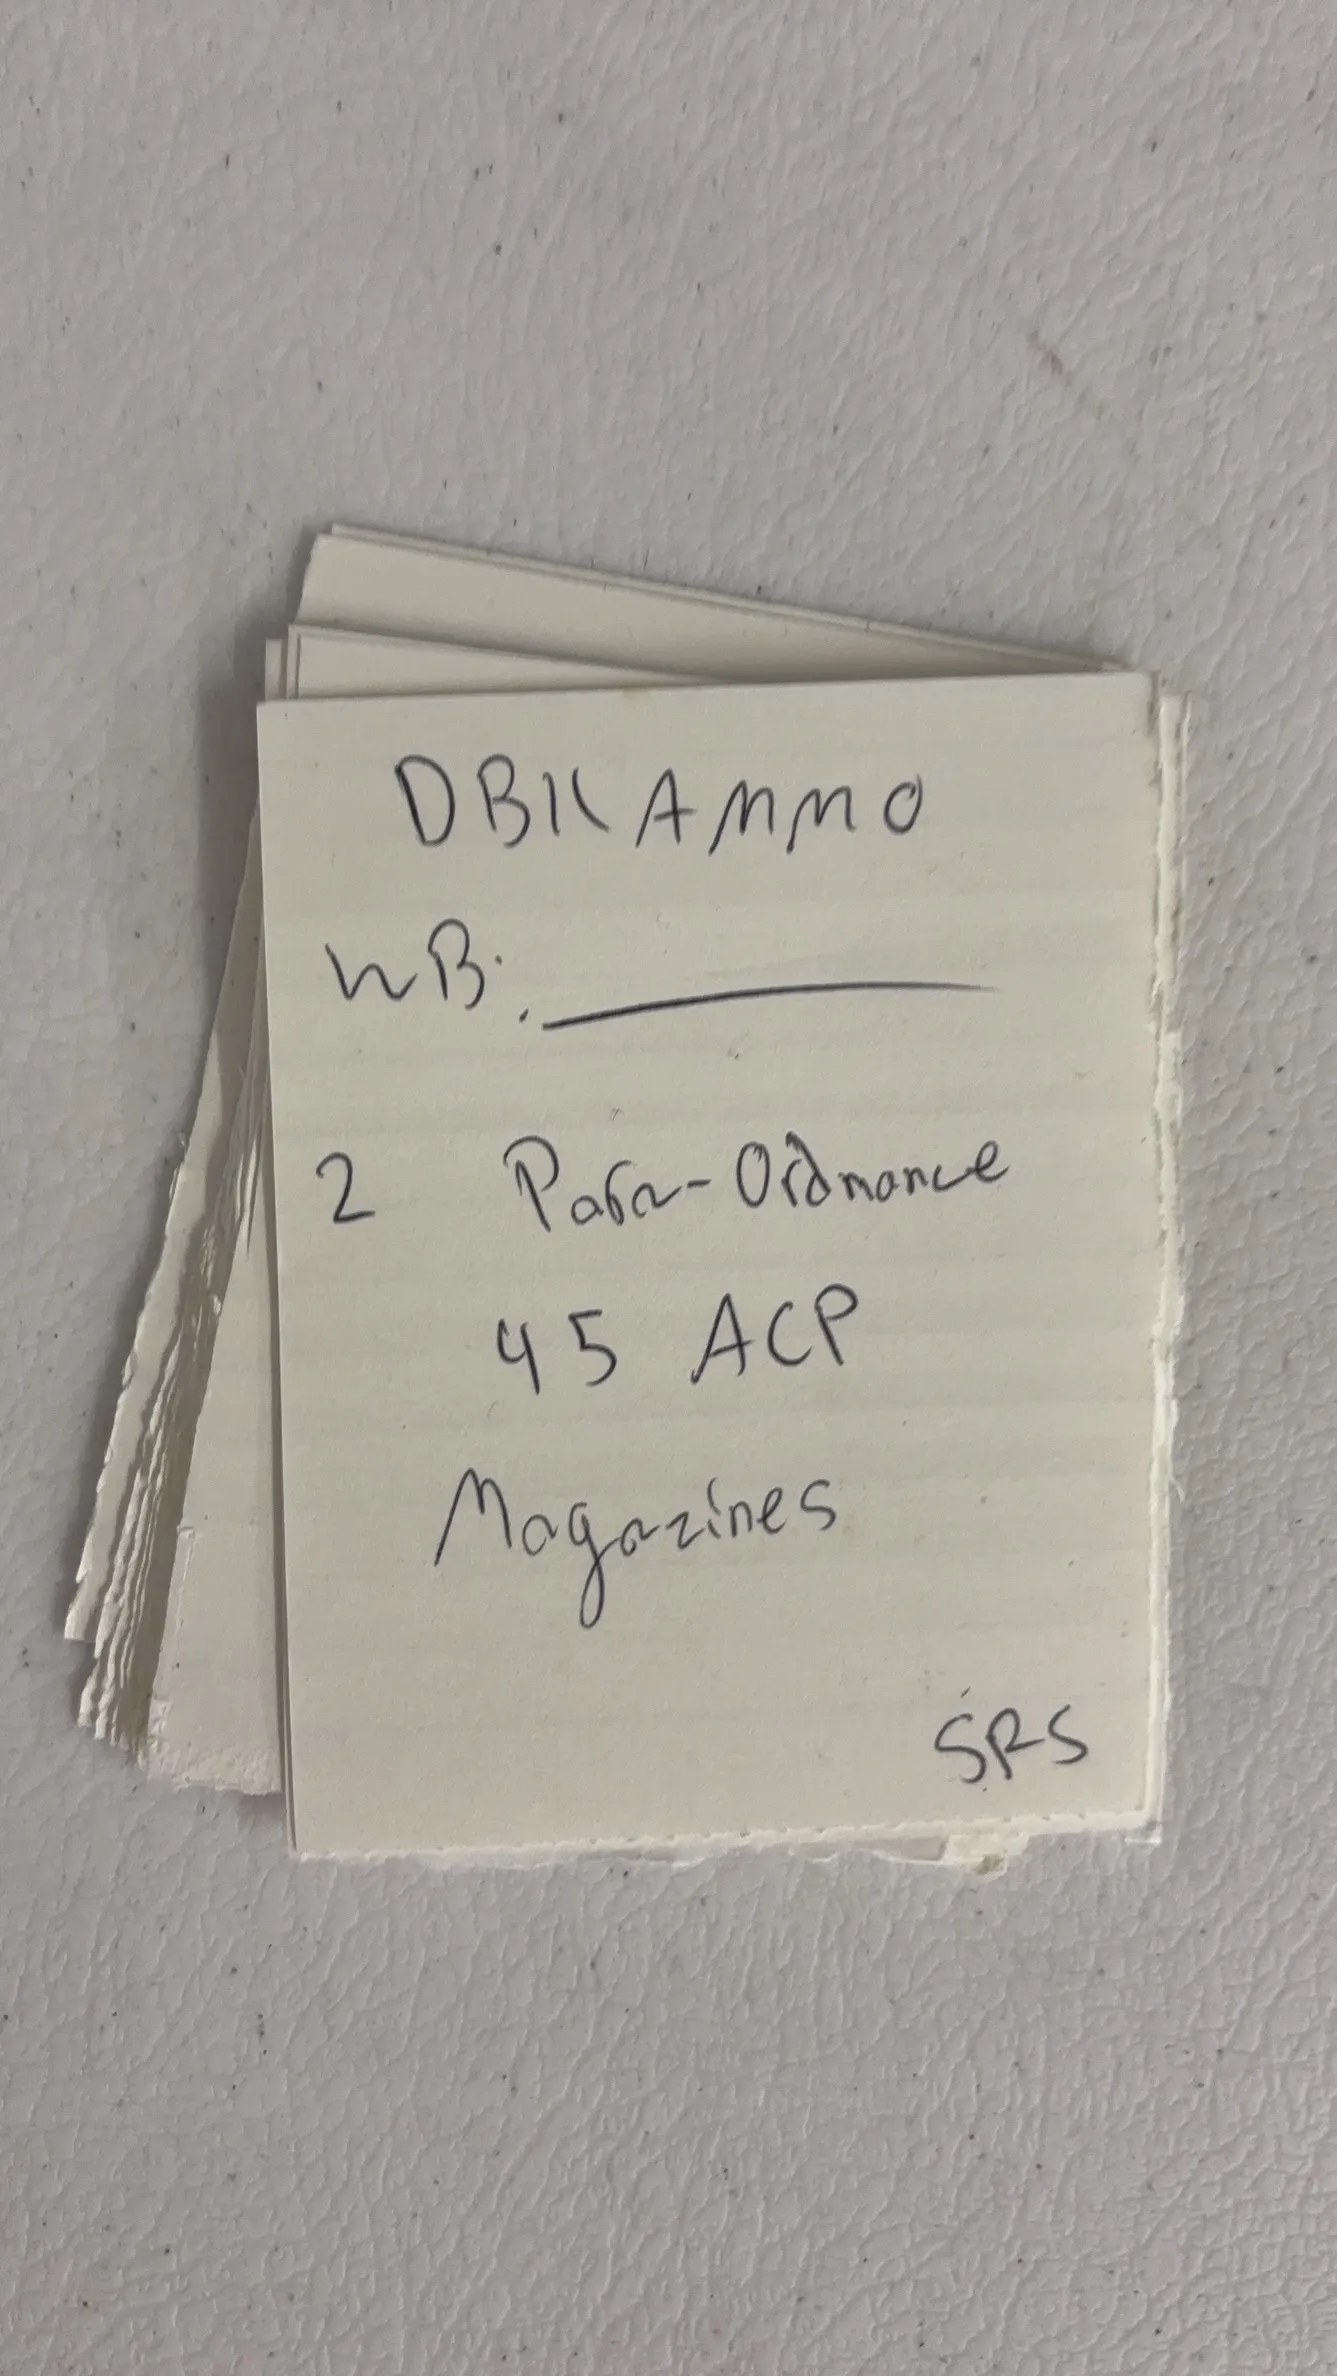 DBK AMMO
WB: ________
2 Para-Ordnance
45 ACP
Magazines
SRS